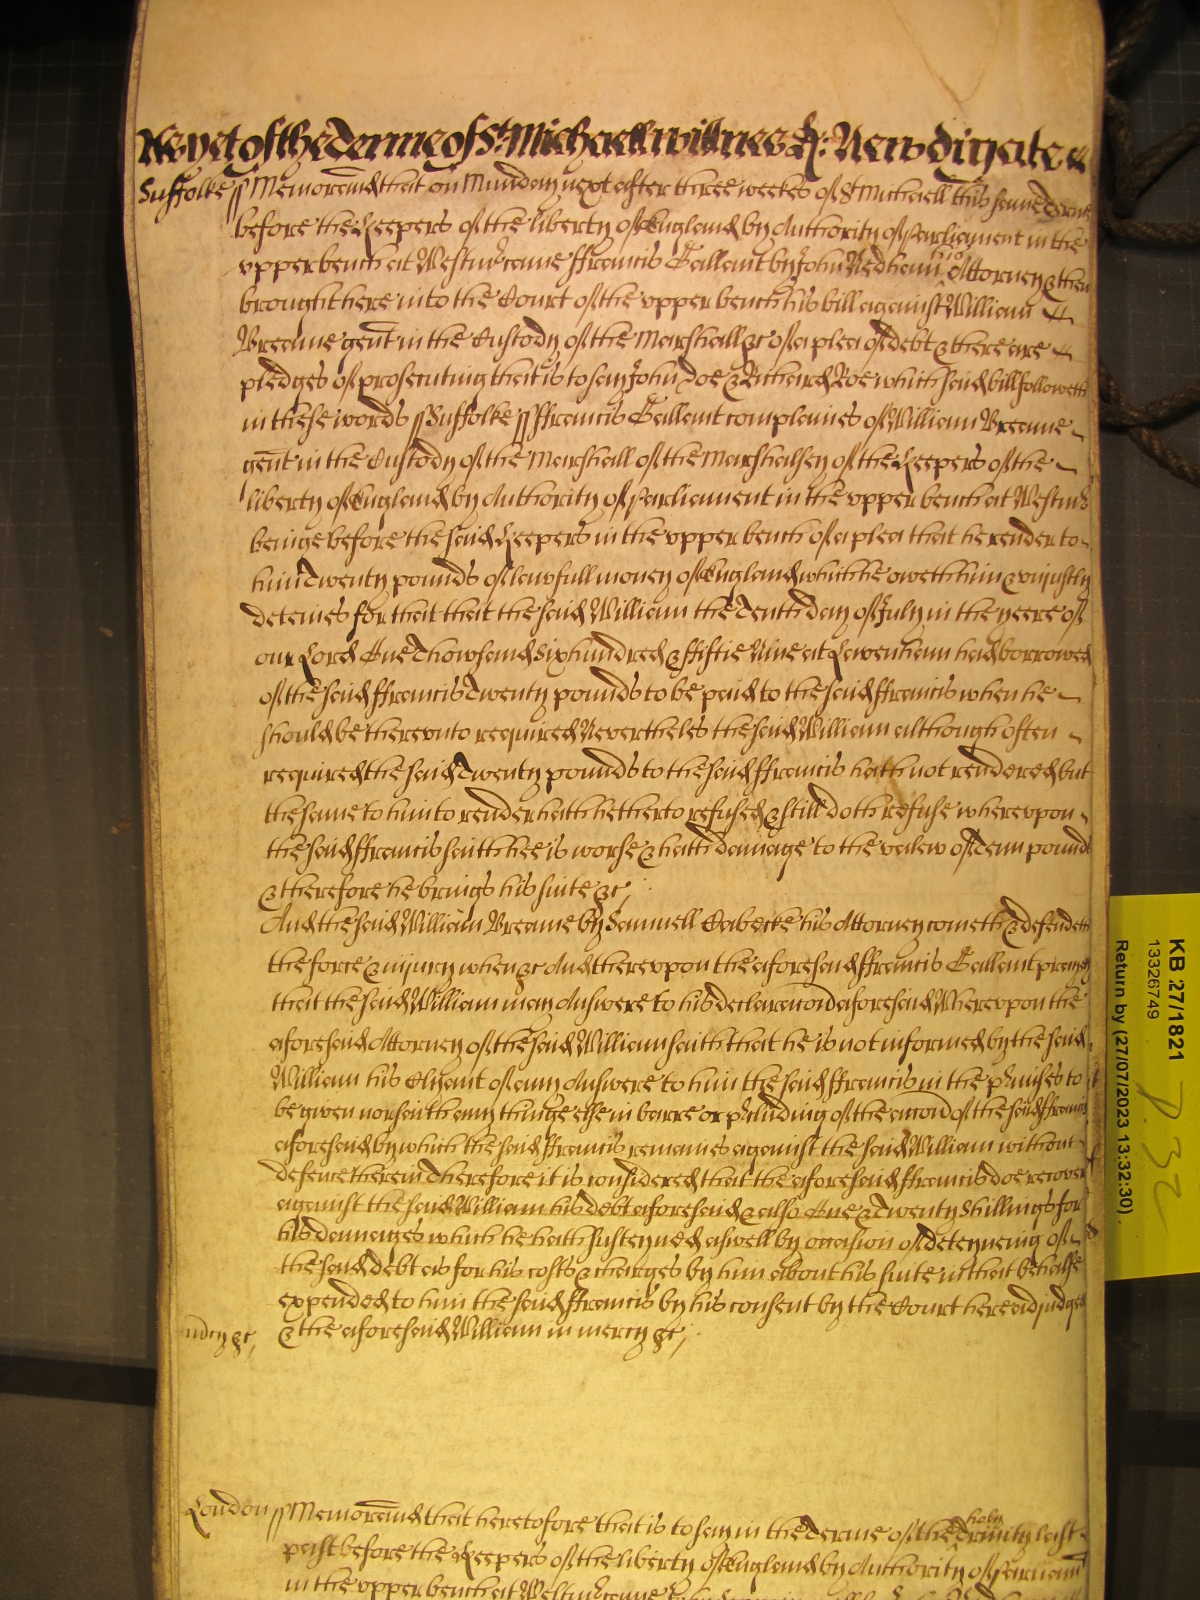 As yet of the Terme of St Michaell wittnes R: Newdigate
Suffolke ss Memorand that on Munday next after three weekes of St Michaell this same Terme
before the Keepers of the liberty of England by Authority of Parliament in the
upper bench at Westmr came Ffrancis Gallant by John Redham his Attorney & then
brought here into the Court of the upper bench his bill against William
Breame gent in the Custody of the Marshall &c of a plea of debt & there are
pledges of prosecuting that is to say John Doe & Richard Roe which said bill followeth
in these words ss Suffolke ss Ffrancis Gallant complaines of William Breame
gent in the Custody of the Marshall of the Marshalsey of the Keepers of the
liberty of England by Authority of Parliament in the upper bench at Westmr
beinge before the said Keepers in the upper bench of a plea that he render to
him Twenty pounds of lawfull money of England which he oweth him & unjustly
detaines for that that the said William the Tenth day of July in the yeere of
our Lord One Thowsand Six hundred & Ffiftie Nine at Lavenham had borrowed
of the said Ffrancis Twenty pounds to be paid to the said Ffrancis when he
should be thereunto reequired Neverthelēs the said William although often
required the said Twenty pounds to the said Ffrancis hath not rendered but
the same to him to render hath hetherto refused & still doth refuse whereupon
the said Ffrancis saith hee is worse & hath damage to the valew of Tenn pounds
& therefore he brings his suite &c
And the said William Breame by Samuell Cabecke his Attorney cometh & defendeth
the force & injury when &c And thereupon the aforesaid Ffrancis Gallant prayeth
that the said William may Answere to his declaracon aforesaid Whereupon the
aforesaid Attorney of the said William saith that he is not informed by the said
William his Clyant of any Answere to him the said Ffrancis in the pmises to
be given nor saith any thinge else in barre or pcluding of the accon of the said Ffrancis
aforesaid by which the said Ffrancis remaines against the said William without
defence therein Therefore it is considered that the aforesaid Ffrancis doe recover
against the said William his debt aforesaid & also One & Twenty Shillings for
his damages which he hath susteyned aswell by occasion of deteyneing of
the said debt as for his costs & charges by him about his suite in that behalfe
expended to him the said Ffrancis by his consent by the Court here adjudged
mcy &c & the aforesaid William in mercy &c
London ss Memorand that heretofore that is to say in the Terme of the holy Trinity last
past before the Keepers of the liberty of England by Authority of Parliamt
in the upper bench at Westmr came
KB 27/1821
13326749
Return by (27/07/2023 13:32:30)
P 32